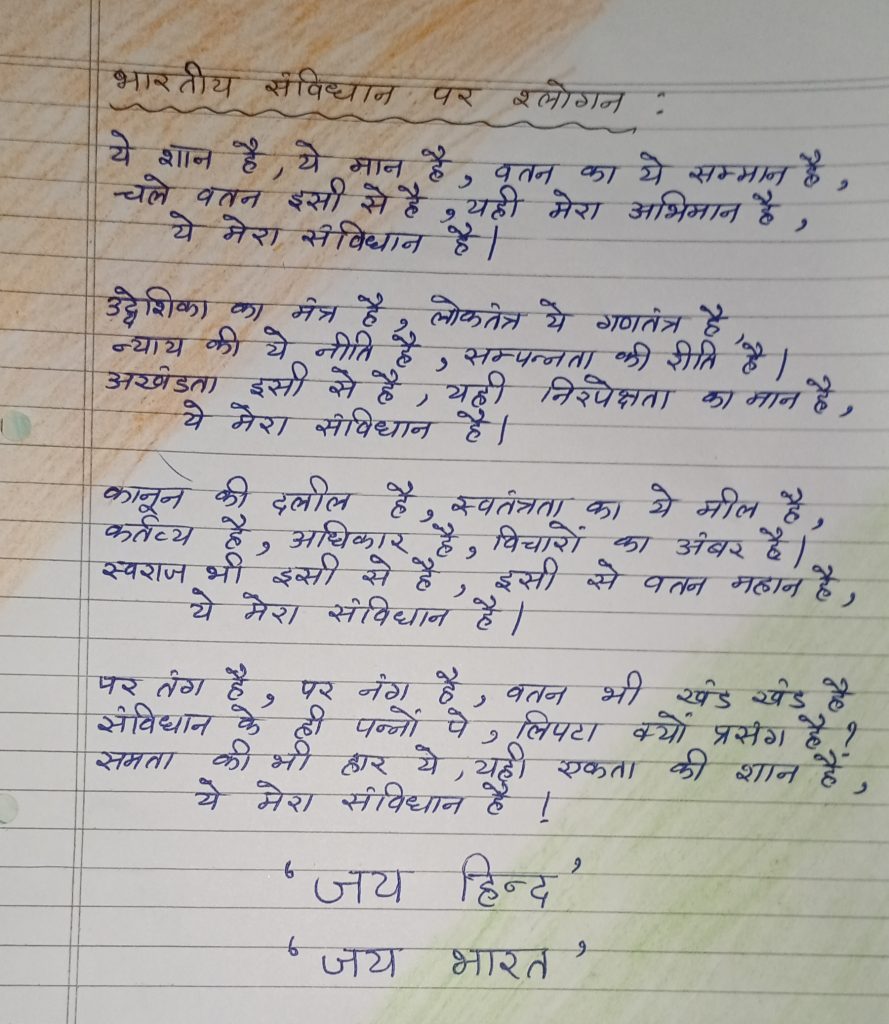 भारतीय संविधान पर श्लोगन :
ये शान है, ये मान है, वतन का ये सम्मान है,
चले वतन इसी से है, यही मेरा अभिमान है,
ये मेरा संविधान है।
उद्देशिका का मंत्र है, लोकतंत्र ये गणतंत्र है,
न्याय की ये नीति है, सम्पन्नता की रीति है।
अखंडता इसी से है, यही निरपेक्षता का मान है,
ये मेरा संविधान है।
कानून की दलील है, स्वतंत्रता का ये मील है,
कर्तव्य है, अधिकार है, विचारों का अंबर है।
स्वराज भी इसी से है, इसी से वतन महान है,
ये मेरा संविधान है।
पर तंग है, पर नंग है, वतन भी खंड खंड है
संविधान के ही पन्नों पे, लिपटा क्यों प्रसंग है?
समता की भी हार ये, यही एकता की शान है,
ये मेरा संविधान है!
‘जय हिन्द’
‘जय भारत’